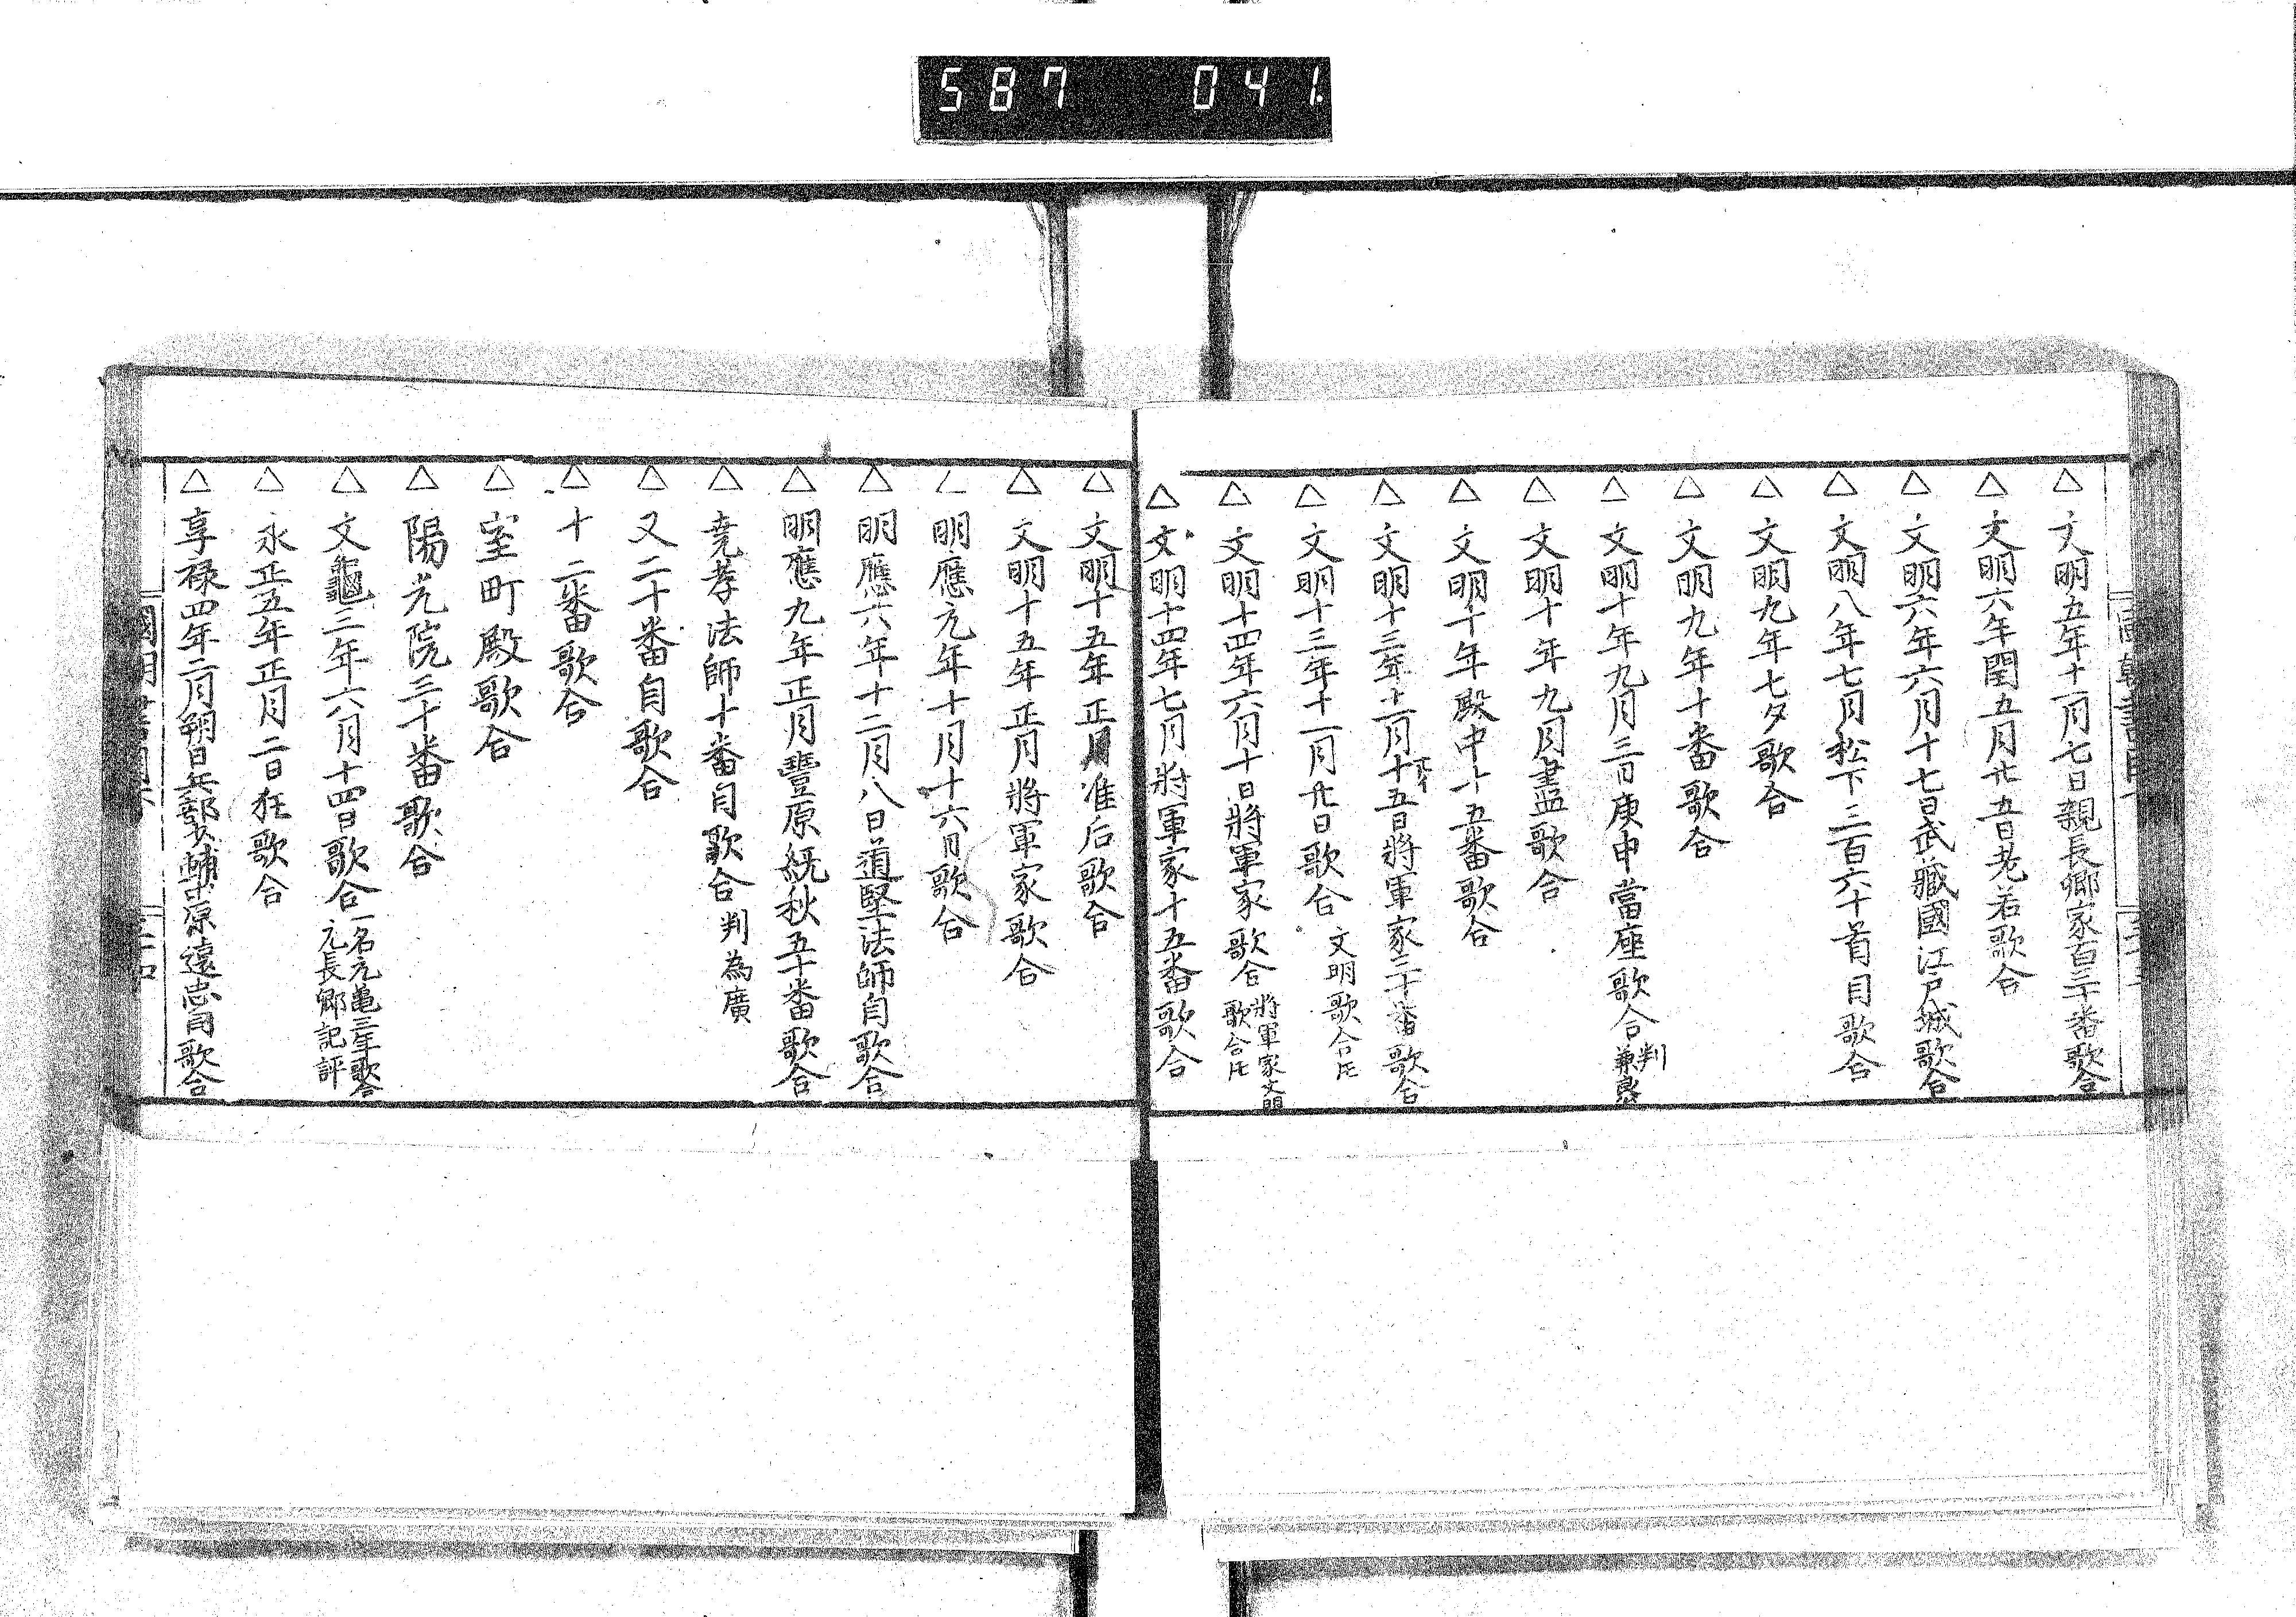 587 041
△文明五年十一月七日親長卿家百三十番歌合
△文明六年閏五月廿五日老若歌合
△文明六年六月十七日武藏國江戸城歌合
△文明八年七月松下三百六十首自歌合
△文明九年七夕歌合
△文明九年十番歌合
△文明十年九月三日庚申當座歌合 判兼良
△文明十年九月盡歌合
△文明十年殿中十五番歌合
△文明十三年十二月十五日將軍家三十番歌合
△文明十三年十一月廿日歌合 文明歌合尾
△文明十四年六月十日將軍家歌合 將軍家文明歌合尾
△文明十四年七月將軍家十五番歌合
△文明十五年正月准后歌合
△文明十五年正月將軍家歌合
△明應元年十月十六日歌合
△明應六年十二月八日道堅法師自歌合
△明應九年正月豐原統秋五十番歌合
△堯孝法師十番自歌合 判為廣
△又二十番自歌合
△十二番歌合
△室町殿歌合
△陽光院三十番歌合
△文龜三年六月十四日歌合 一名元亀三年歌合 元長卿記評
△永正五年正月二日狂歌合
△享祿四年二月朔日兵部少輔源遠忠自歌合